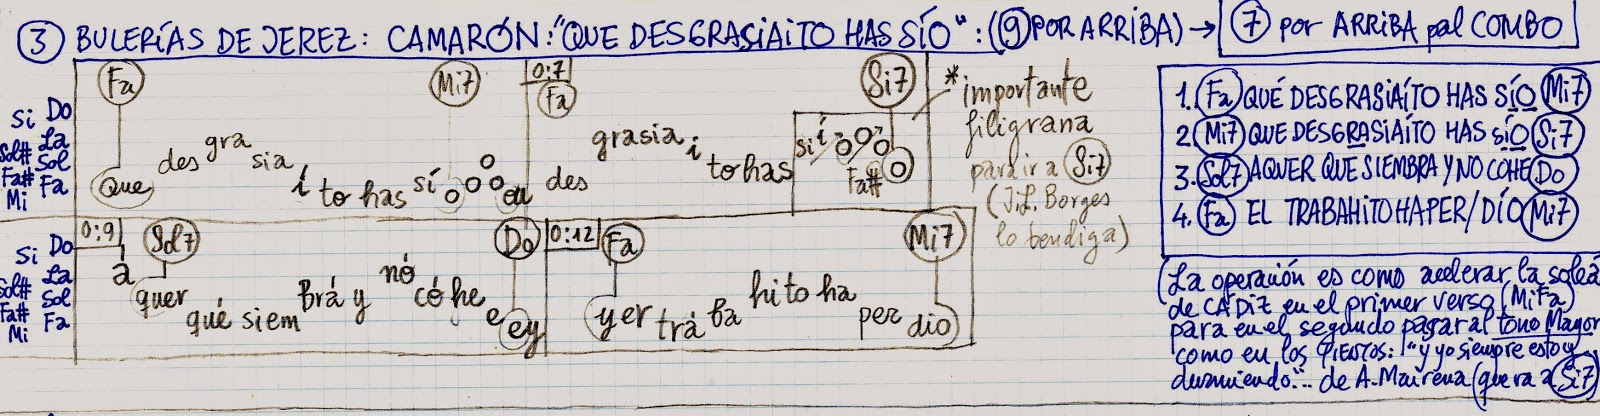 ③ BULERÍAS DE JEREZ: CAMARÓN: "QUE DESGRASIAITO HAS SÍO": (⑨ POR ARRIBA) → ⑦ por ARRIBA pal COMBO
Fa Mi7 0:7 Fa Si7
Si Do
La
Sol# Sol
Fa# Fa
Mi
Que des gra sia í to has sí eu
des grasia i to has si í
Fa#
* importante
filigrana
para ir a Si7
(J.L. Borges
lo bendiga)
0:9 Sol7 Do 0:12 Fa Mi7
Si Do
La
Sol# Sol
Fa# Fa
Mi
a quer qué siem brá y nó có he e ey
yer trá ba hi to ha per dio
1. Fa QUÉ DESGRASIAÍTO HAS SÍO Mi7
2. Mi7 QUE DESGRASIAÍTO HAS SÍO Si7
3. Sol7 AQUER QUE SIEMBRA Y NO COHE Do
4. Fa EL TRABAHITO HA PER/DÍO Mi7
(La operación es como acelerar la soleá
de CADIZ en el primer verso (Mi Fa)
para en el segundo pasar al tono Mayor
como en los : "y yo siempre estoy
durmiendo"... de A. Mairena (que va a Si7)